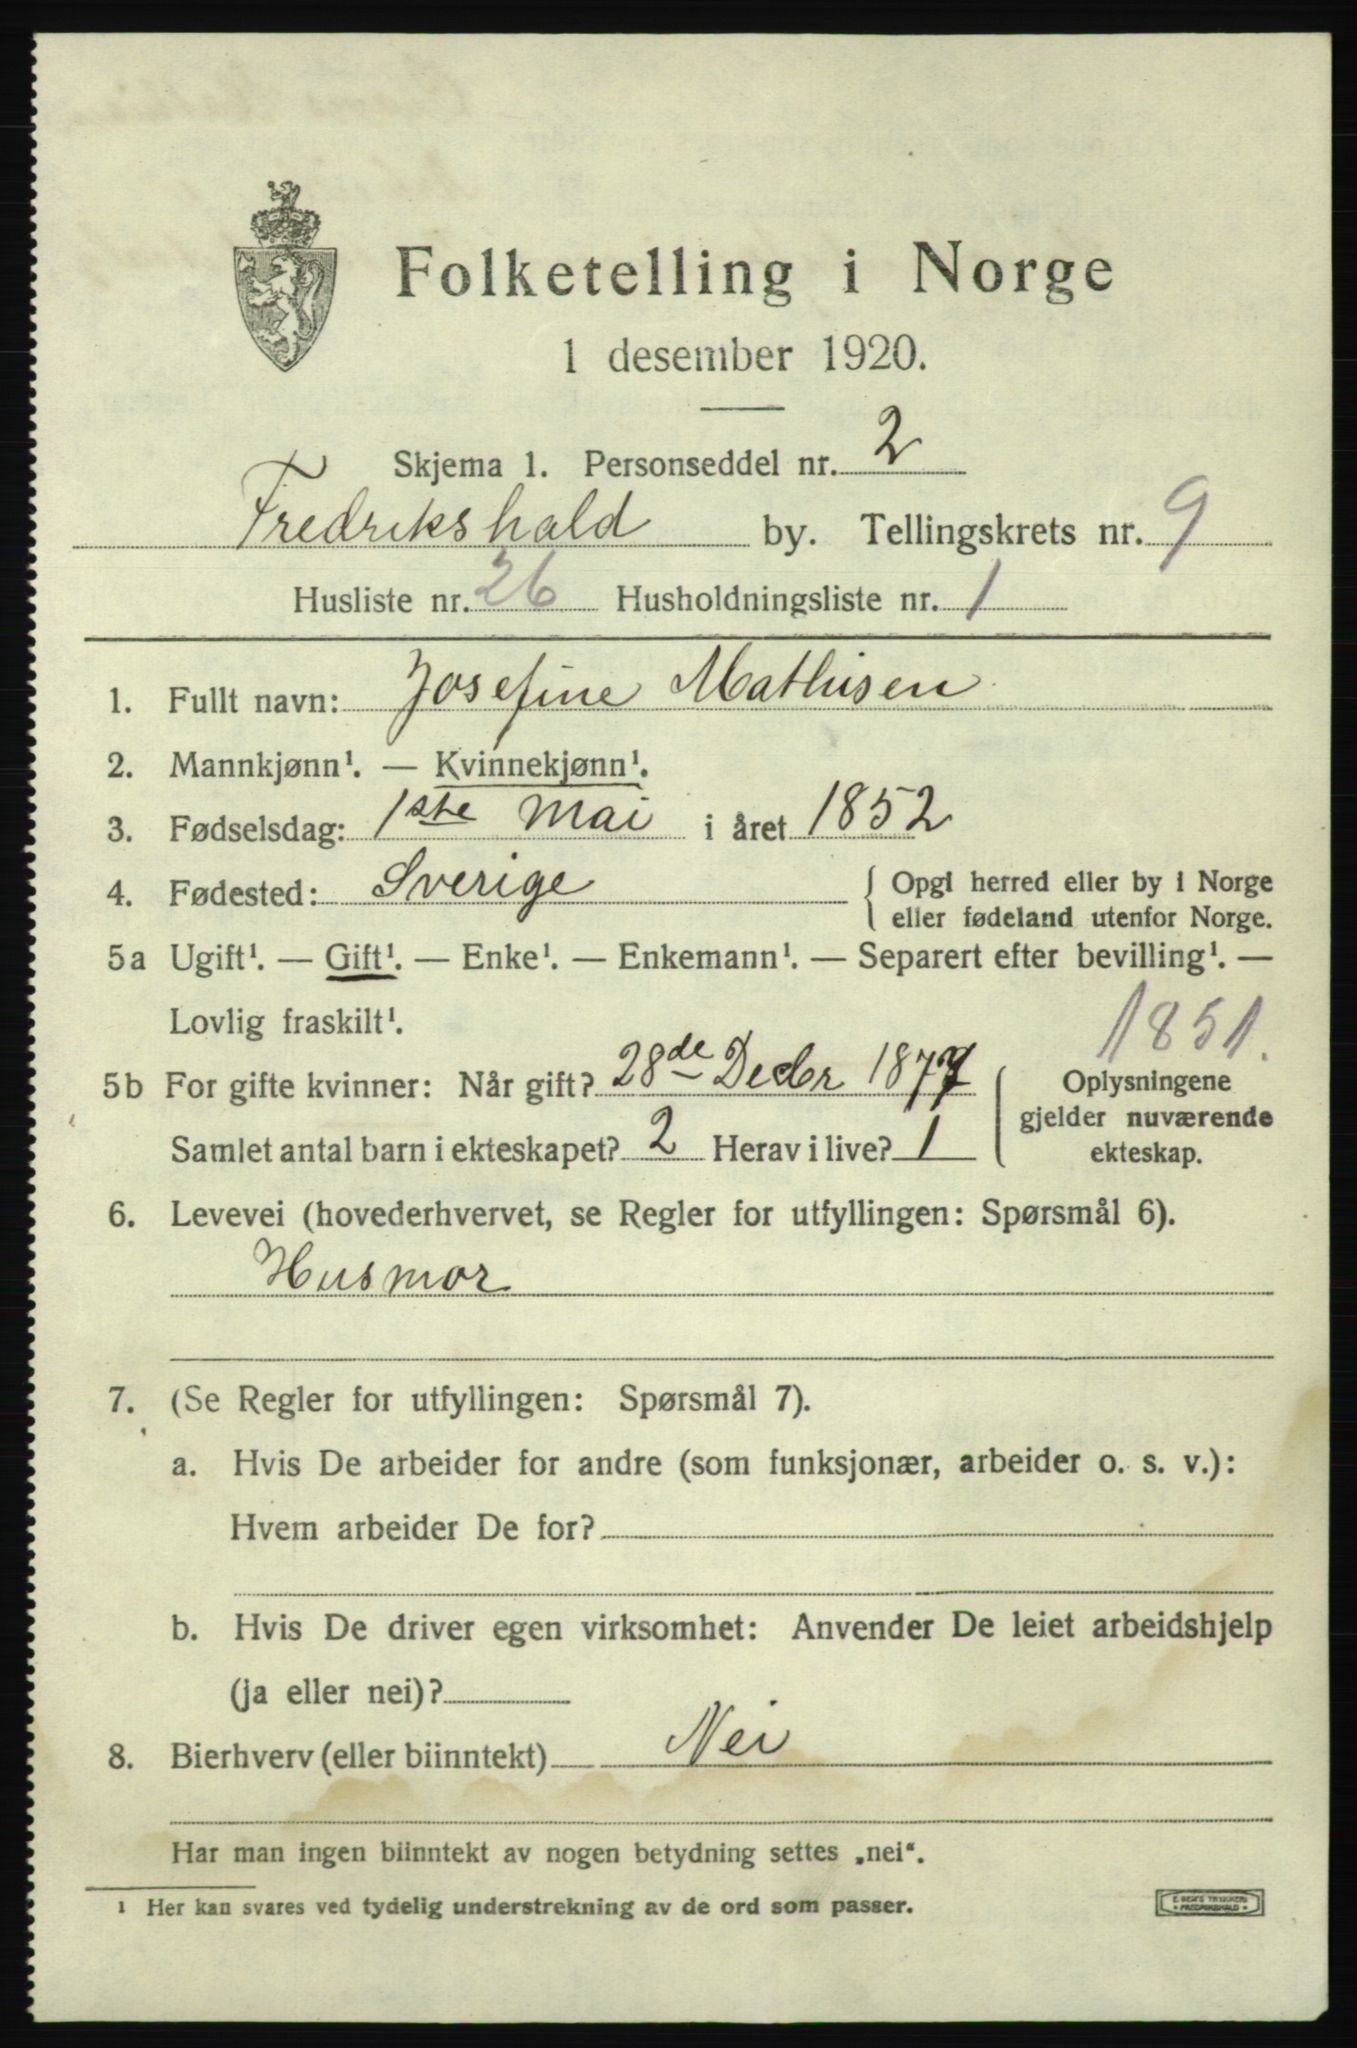 Folketelling i Norge
1 desember 1920.
Skjema 1. Personseddel nr. 2
Fredrikshald by. Tellingskrets nr. 9
Husliste nr. 26 Husholdningsliste nr. 1
1. Fullt navn: Josefine Mathisen
2. Mannkjønn¹. — Kvinnekjønn¹.
3. Fødselsdag: 1ste Mai i året 1852
4. Fødested: Sverige { Opgi herred eller by i Norge
eller fødeland utenfor Norge.
5a Ugift¹. — Gift¹. — Enke¹. — Enkemann¹. — Separert efter bevilling¹. —
Lovlig fraskilt¹.
1851.
5b For gifte kvinner: Når gift? 28de Decbr 1877
Samlet antal barn i ekteskapet? 2 Herav i live? 1
Oplysningene
gjelder nuværende
ekteskap.
6. Levevei (hovederhvervet, se Regler for utfyllingen: Spørsmål 6).
Husmor
7. (Se Regler for utfyllingen: Spørsmål 7).
a. Hvis De arbeider for andre (som funksjonær, arbeider o. s. v.):
Hvem arbeider De for?
b. Hvis De driver egen virksomhet: Anvender De leiet arbeidshjelp
(ja eller nei)?
8. Bierhverv (eller biinntekt) Nei
Har man ingen biinntekt av nogen betydning settes „nei“.
¹ Her kan svares ved tydelig understrekning av de ord som passer.